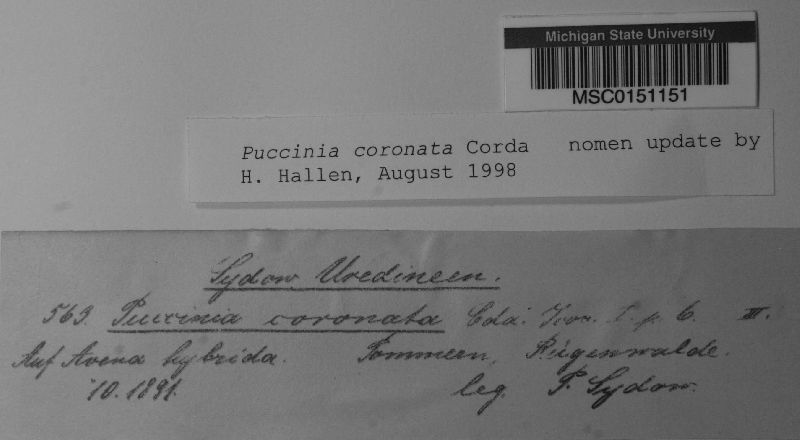 Michigan State University
MSC0151151
Puccinia coronata Corda nomen update by
H. Hallen, August 1998
Sydow, Uredineen.
563. Puccinia coronata Cda. Icon. I. p. 6. III.
Auf Avena hybrida. Pommern, Rügenwalde.
10. 1891. leg. P. Sydow.